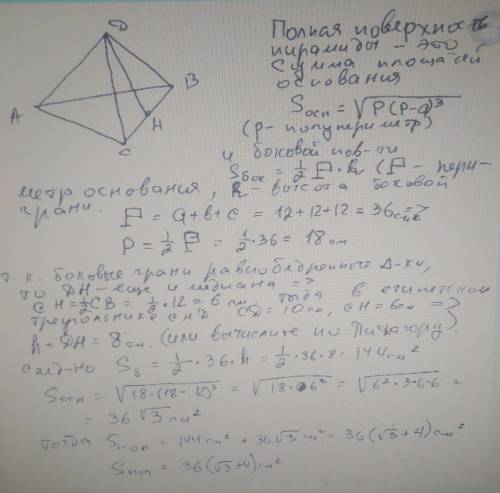 D
A
B
C
H
Полная поверхность
пирамиды - это
сумма площадей
основания
Sосн = √P(P-a)³
(p - полупериметр)
и боковой пов-ти
Sбок = 1/2 P · h (P - пери-
метр основания, h - высота боковой
грани.
P = a + b + c = 12 + 12 + 12 = 36 см =>
P = 1/2 P = 1/2 · 36 = 18 см.
т. к. боковые грани равнобедренные Δ-ки,
то DH - еще и медиана =>
CH = 1/2 CB = 1/2 · 12 = 6 см тогда в египетском
треугольнике CHD CD = 10 см, CH = 6 см =>
h = DH = 8 см. (или вычислите по Пифагору).
след-но Sδ = 1/2 · 36 · h = 1/2 · 36 · 8 = 144 см²
Sосн = √18 · (18 - 12)³ = √18 · 6³ = √6² · 3 · 6 · 6 =
= 36 √3 см²
тогда Sпол = 144 см² + 36 √3 см² = 36 (√3 + 4) см²
Sпол = 36 (√3 + 4) см²